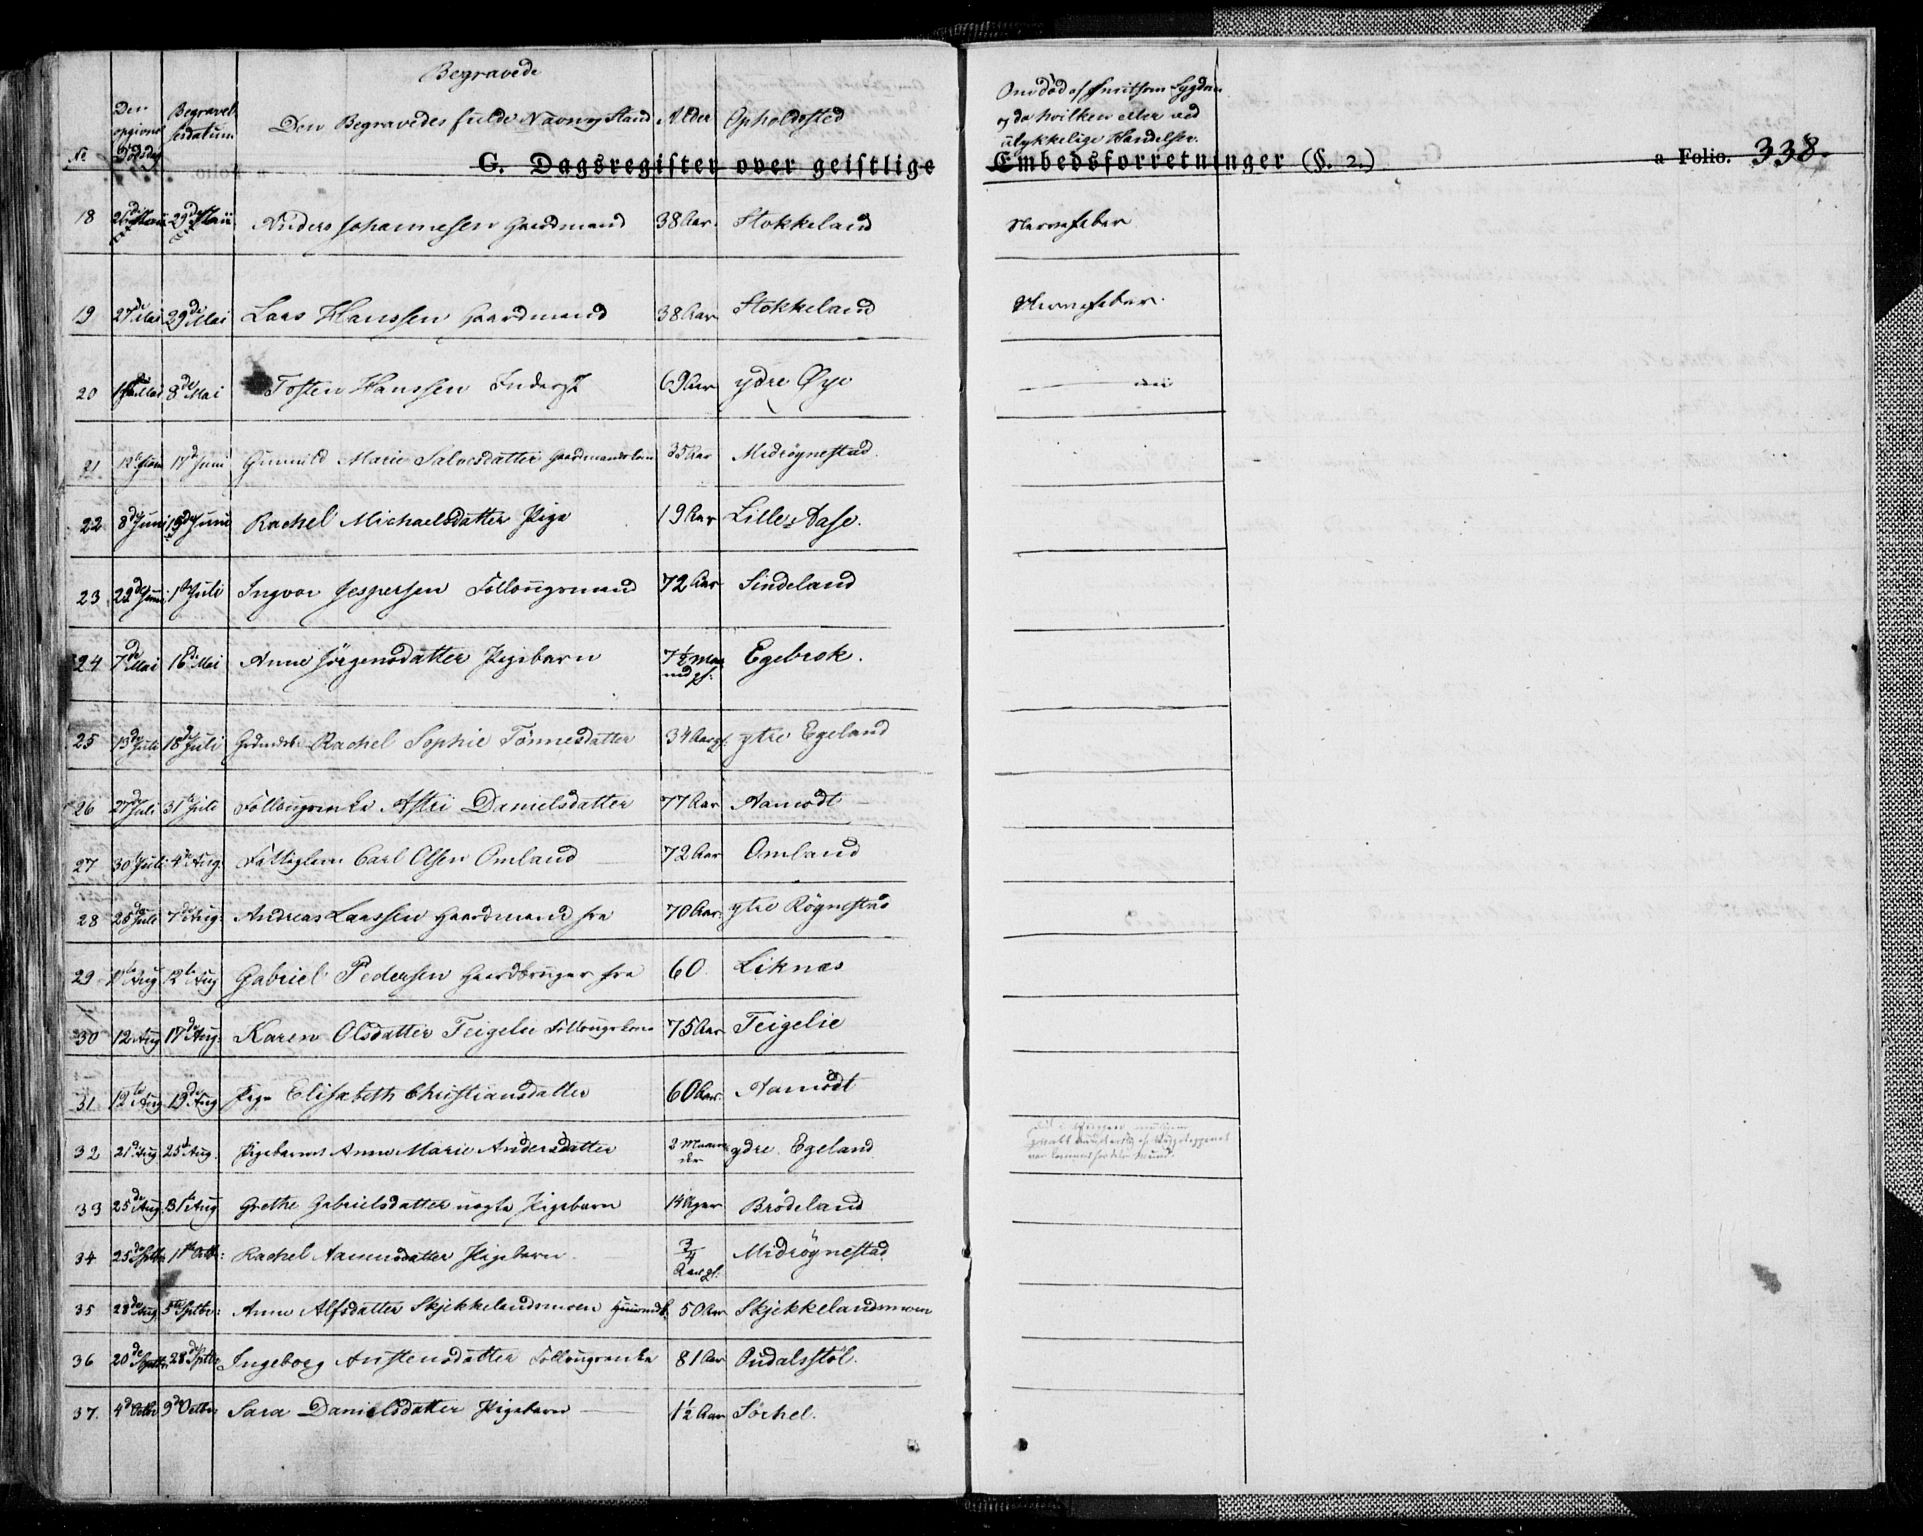 Begravede
No
Den opgivne Dödsdag
Begravelsesdatum
Den Begravedes fulde Navn og Stand
Alder
Opholdssted
Om död af smitsom Sygdom og da hvilken eller ved ulykkelige Hændelser.
G. Dagsregister over geistlige Embedsforretninger (§. 2.) a Folio. 338.
18 26de Mai 29de Mai Anders Johannesen Gaardmand 38 Aar. Stokkeland Nervefeber
19 27de Mai 29de Mai Lars Hanssen Gaardmand 38 Aar Stokkeland Nervefeber.
20 8de Mai Tosten Hanssen Inderst 69 Aar ydre Øye
21. 12te Juni 17de Juni Gunnild Marie Salvesdatter Gaardmandskone 35 Aar Midrögnestad.
22 8de Juni 19de Juni Rachel Michaelsdatter Pige 19 Aar Lille Aase.
23 22de Juni 1ste Juli Ingvor Jespersen Follougsmand 72 Aar Sindeland
24 7de Mai 16de Mai Anne Jörgensdatter Pigebarn 7½ Maanud gl. Egebrok.
25 13de Juli 18de Juli Rachel Sophie Tönnesdatter 34 Aar gl. ytre Egeland
26 27de Juli 31te Juli Follougsenke Astri Danielsdatter 77 Aar Aamodt
27 30 Juli 4de Aug. Fattiglem Carl Olsen Omland 72 Aar Omland
28 25de Juli 7de Aug: Andreas Larssen Gaardmand fra 70 Aar. ytre Rögnestad
29 11te Aug 12te Aug Gabriel Pedersen Gaardbruger fra 60. Liknes
30 12 Aug 17de Aug: Karen Olsdatter Teigelie Follougskone 75 Aar Teigelie
31 12te Aug 19de Aug Pige Elisabeth Christiansdatter 60 Aar. Aamodt
32 21de Aug 25de Aug. Pigebarnet Anne Marie Andersdatter 2 Maaneder ydre Egeland
33 25de Aug. 31te Aug Grethe Gabrielsdatter uægte Pigebarn 14 Uger Brödeland
34 25de Septbr 1ste Octb: Rachel Aanensdatter Pigebarn. 3/4 Aar gl. Midrögnestad
35 28de Aug. 5te Septbr: Anne Alfsdatter Skjekkelandsmoen 50 Aar Skjekkelandsmoen
36 20de Septbr 28de Septbr Ingeborg Anstensdatter Follougsenke 81 Aar Omdalsstöl.
37. 4de Octbr 9de Octbr Sara Danielsdatter Pigebarn 1½ Aar Sörhel.